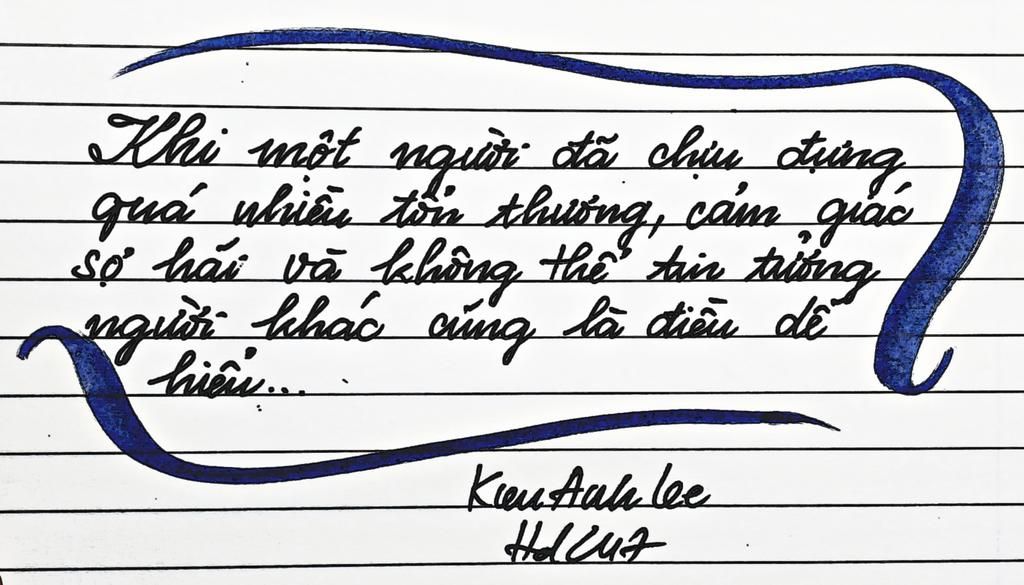 Khi một người đã chịu đựng
quá nhiều tổn thương, cảm giác
sợ hãi và không thể tin tưởng
người khác cũng là điều dễ
hiểu...
Kim Anh Lee